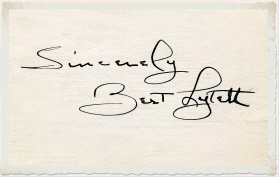 Sincerely
Bert Lytell